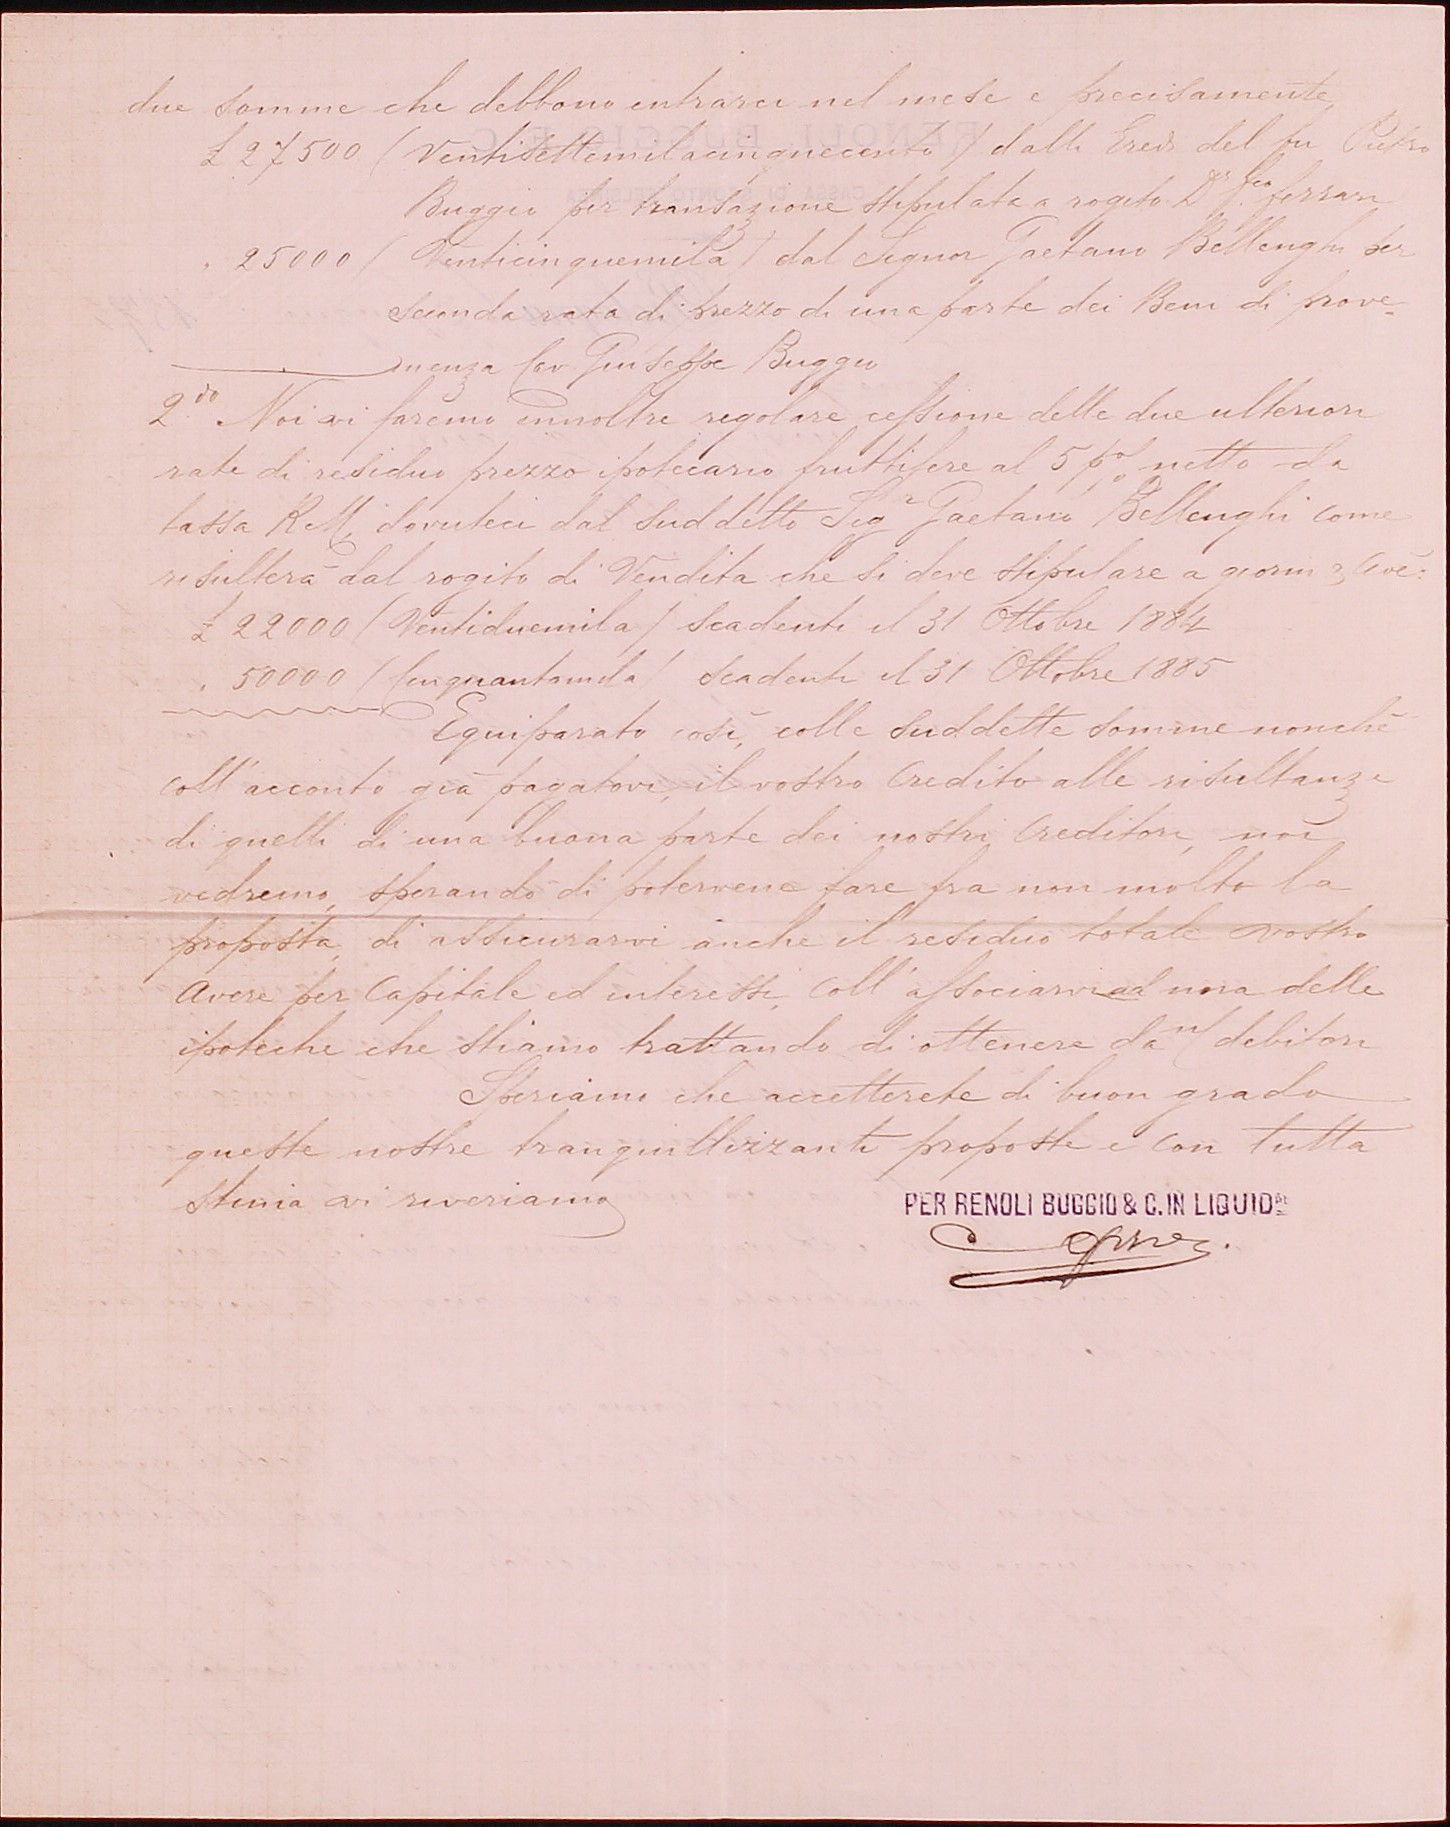 due somme che debbono entrarci nel mese e precisamente
£ 27500 (Ventisettemilacinquecento) dalli Eredi del fu Pietro
Buggio per transazione stipulata a rogito Dr. Fco. Ferrari
" 25000 (Venticinquemila) dal Signor Gaetano Bellenghi per
seconda rata di prezzo di una parte dei Beni di prove-
nienza Cav Giuseppe Buggio
2do. Noi vi faremo innoltre regolare cessione delle due ulteriori
rate di residuo prezzo ipotecario fruttifere al 5 p% netto da
tassa R.M, dovuteci dal suddetto Sigr Gaetano Bellenghi come
risulterà dal rogito di Vendita che si deve stipulare a giorni, cioè:
£ 22000 (Ventiduemila) scadenti il 31 Ottobre 1884
" 50000 (Cinquantamila) scadenti il 31 Ottobre 1885
Equiparato così, colle suddette somme nonchè
coll'acconto già pagatovi, il vostro Credito alle risultanze
di quelli di una buona parte dei nostri Creditori, noi
vedremo, sperando di potervene fare fra non molto la
proposta, di assicurarvi anche il residuo totale vostro
Avere per Capitale ed interessi, coll'associarvi ad una delle
ipoteche che stiamo trattando di ottenere dani debitori
Speriamo che accetterete di buon grado
queste nostre tranquillizzanti proposte e con tutta
stima vi riveriamo
PER RENOLI BUGGIO & C. IN LIQUIDNE